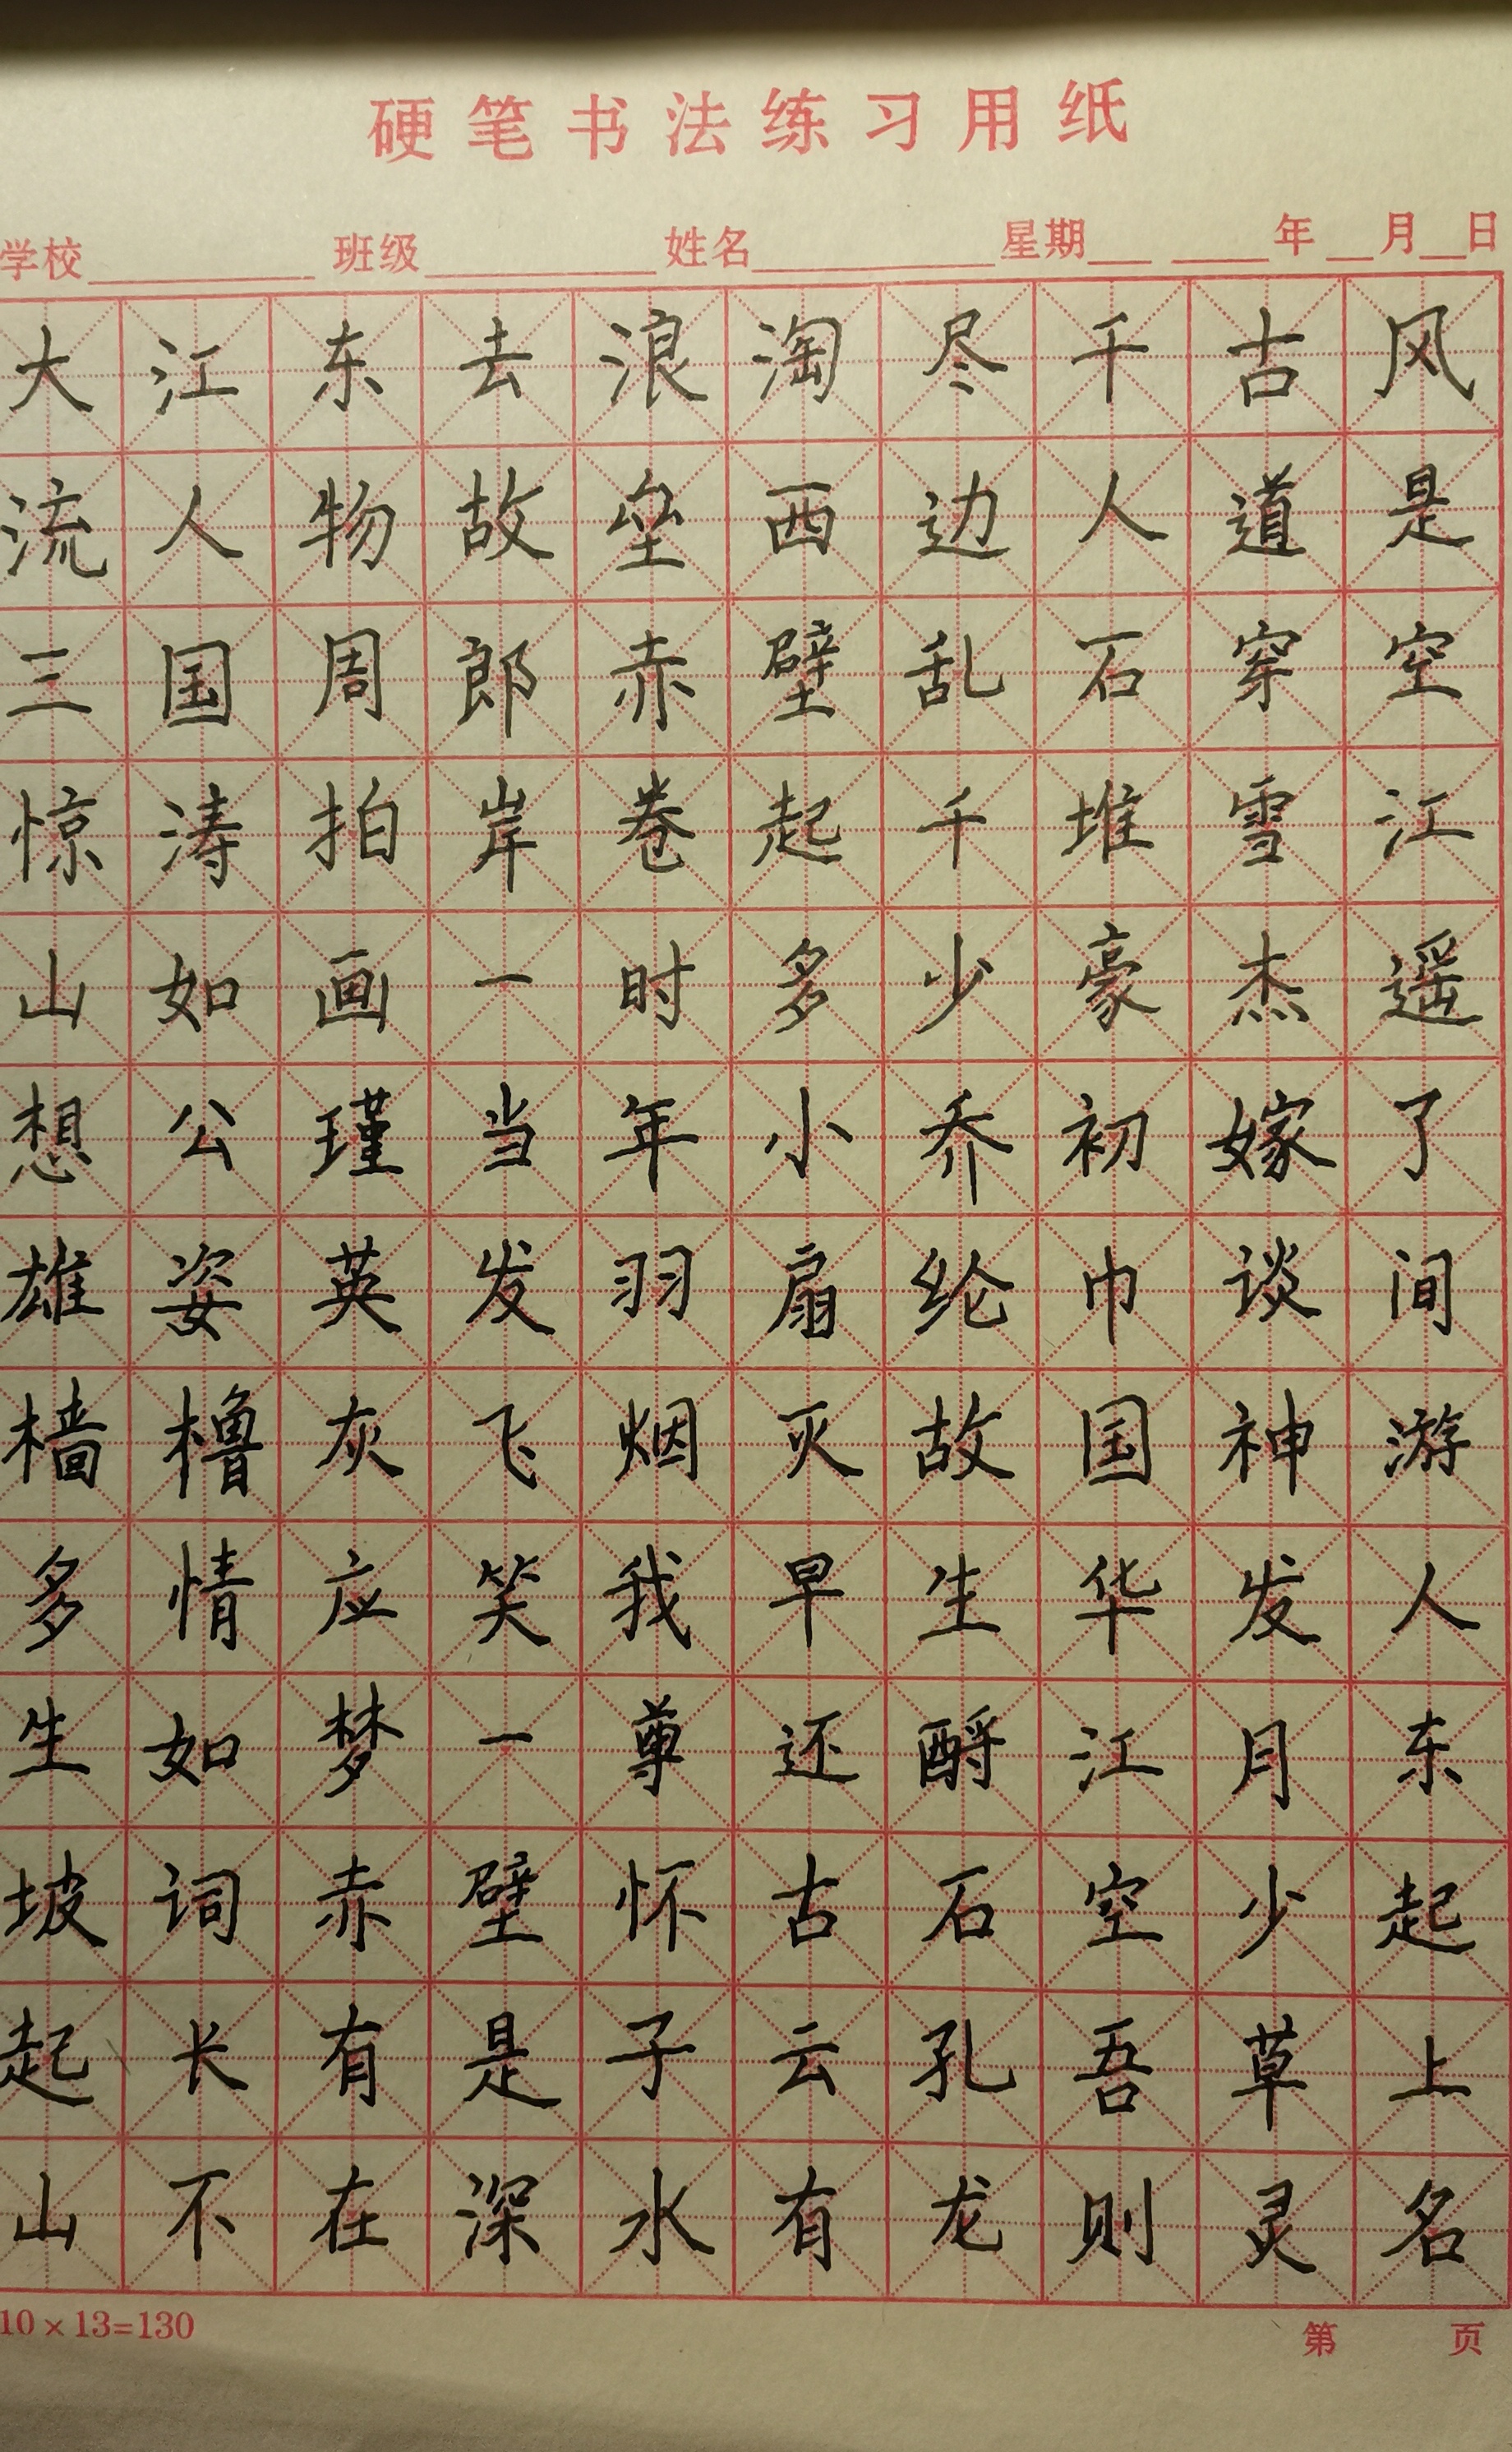 硬笔书法练习用纸
学校 班级 姓名 星期 年 月 日
大江东去浪淘尽千古风
流人物故垒西边人道是
三国周郎赤壁乱石穿空
惊涛拍岸卷起千堆雪江
山如画一时多少豪杰遥
想公瑾当年小乔初嫁了
雄姿英发羽扇纶巾谈间
樯橹灰飞烟灭故国神游
多情应笑我早生华发人
生如梦一尊还酹江月东
坡词赤壁怀古石空少起
起长有是子云孔吾草上
山不在深水有龙则灵名
10×13=130 第 页